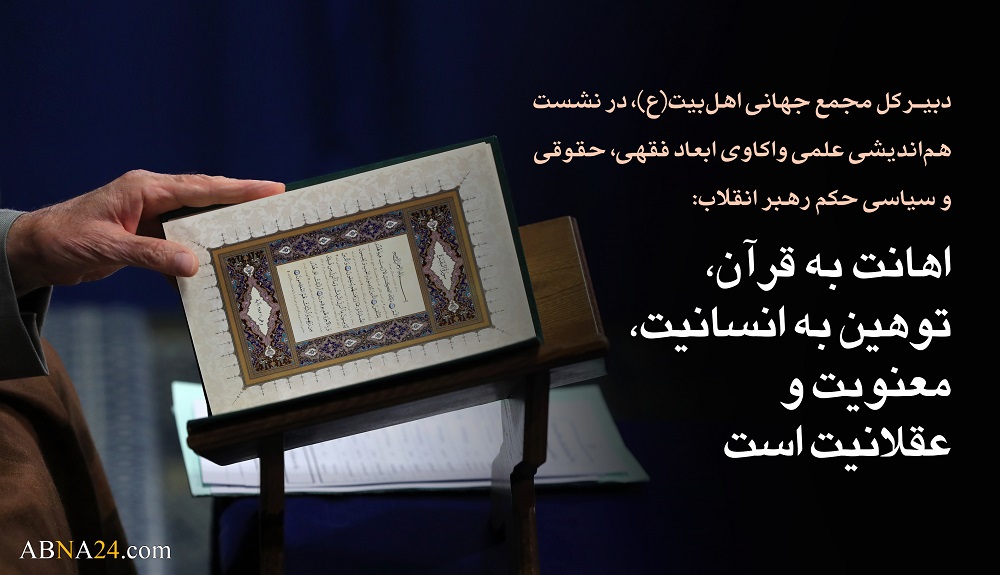 دبیرکل مجمع جهانی اهل‌بیت(ع)، در نشست
هم‌اندیشی علمی واکاوی ابعاد فقهی، حقوقی
و سیاسی حکم رهبر انقلاب:
اهانت به قرآن،
توهین به انسانیت،
معنویت و
عقلانیت است
ABNA24.com